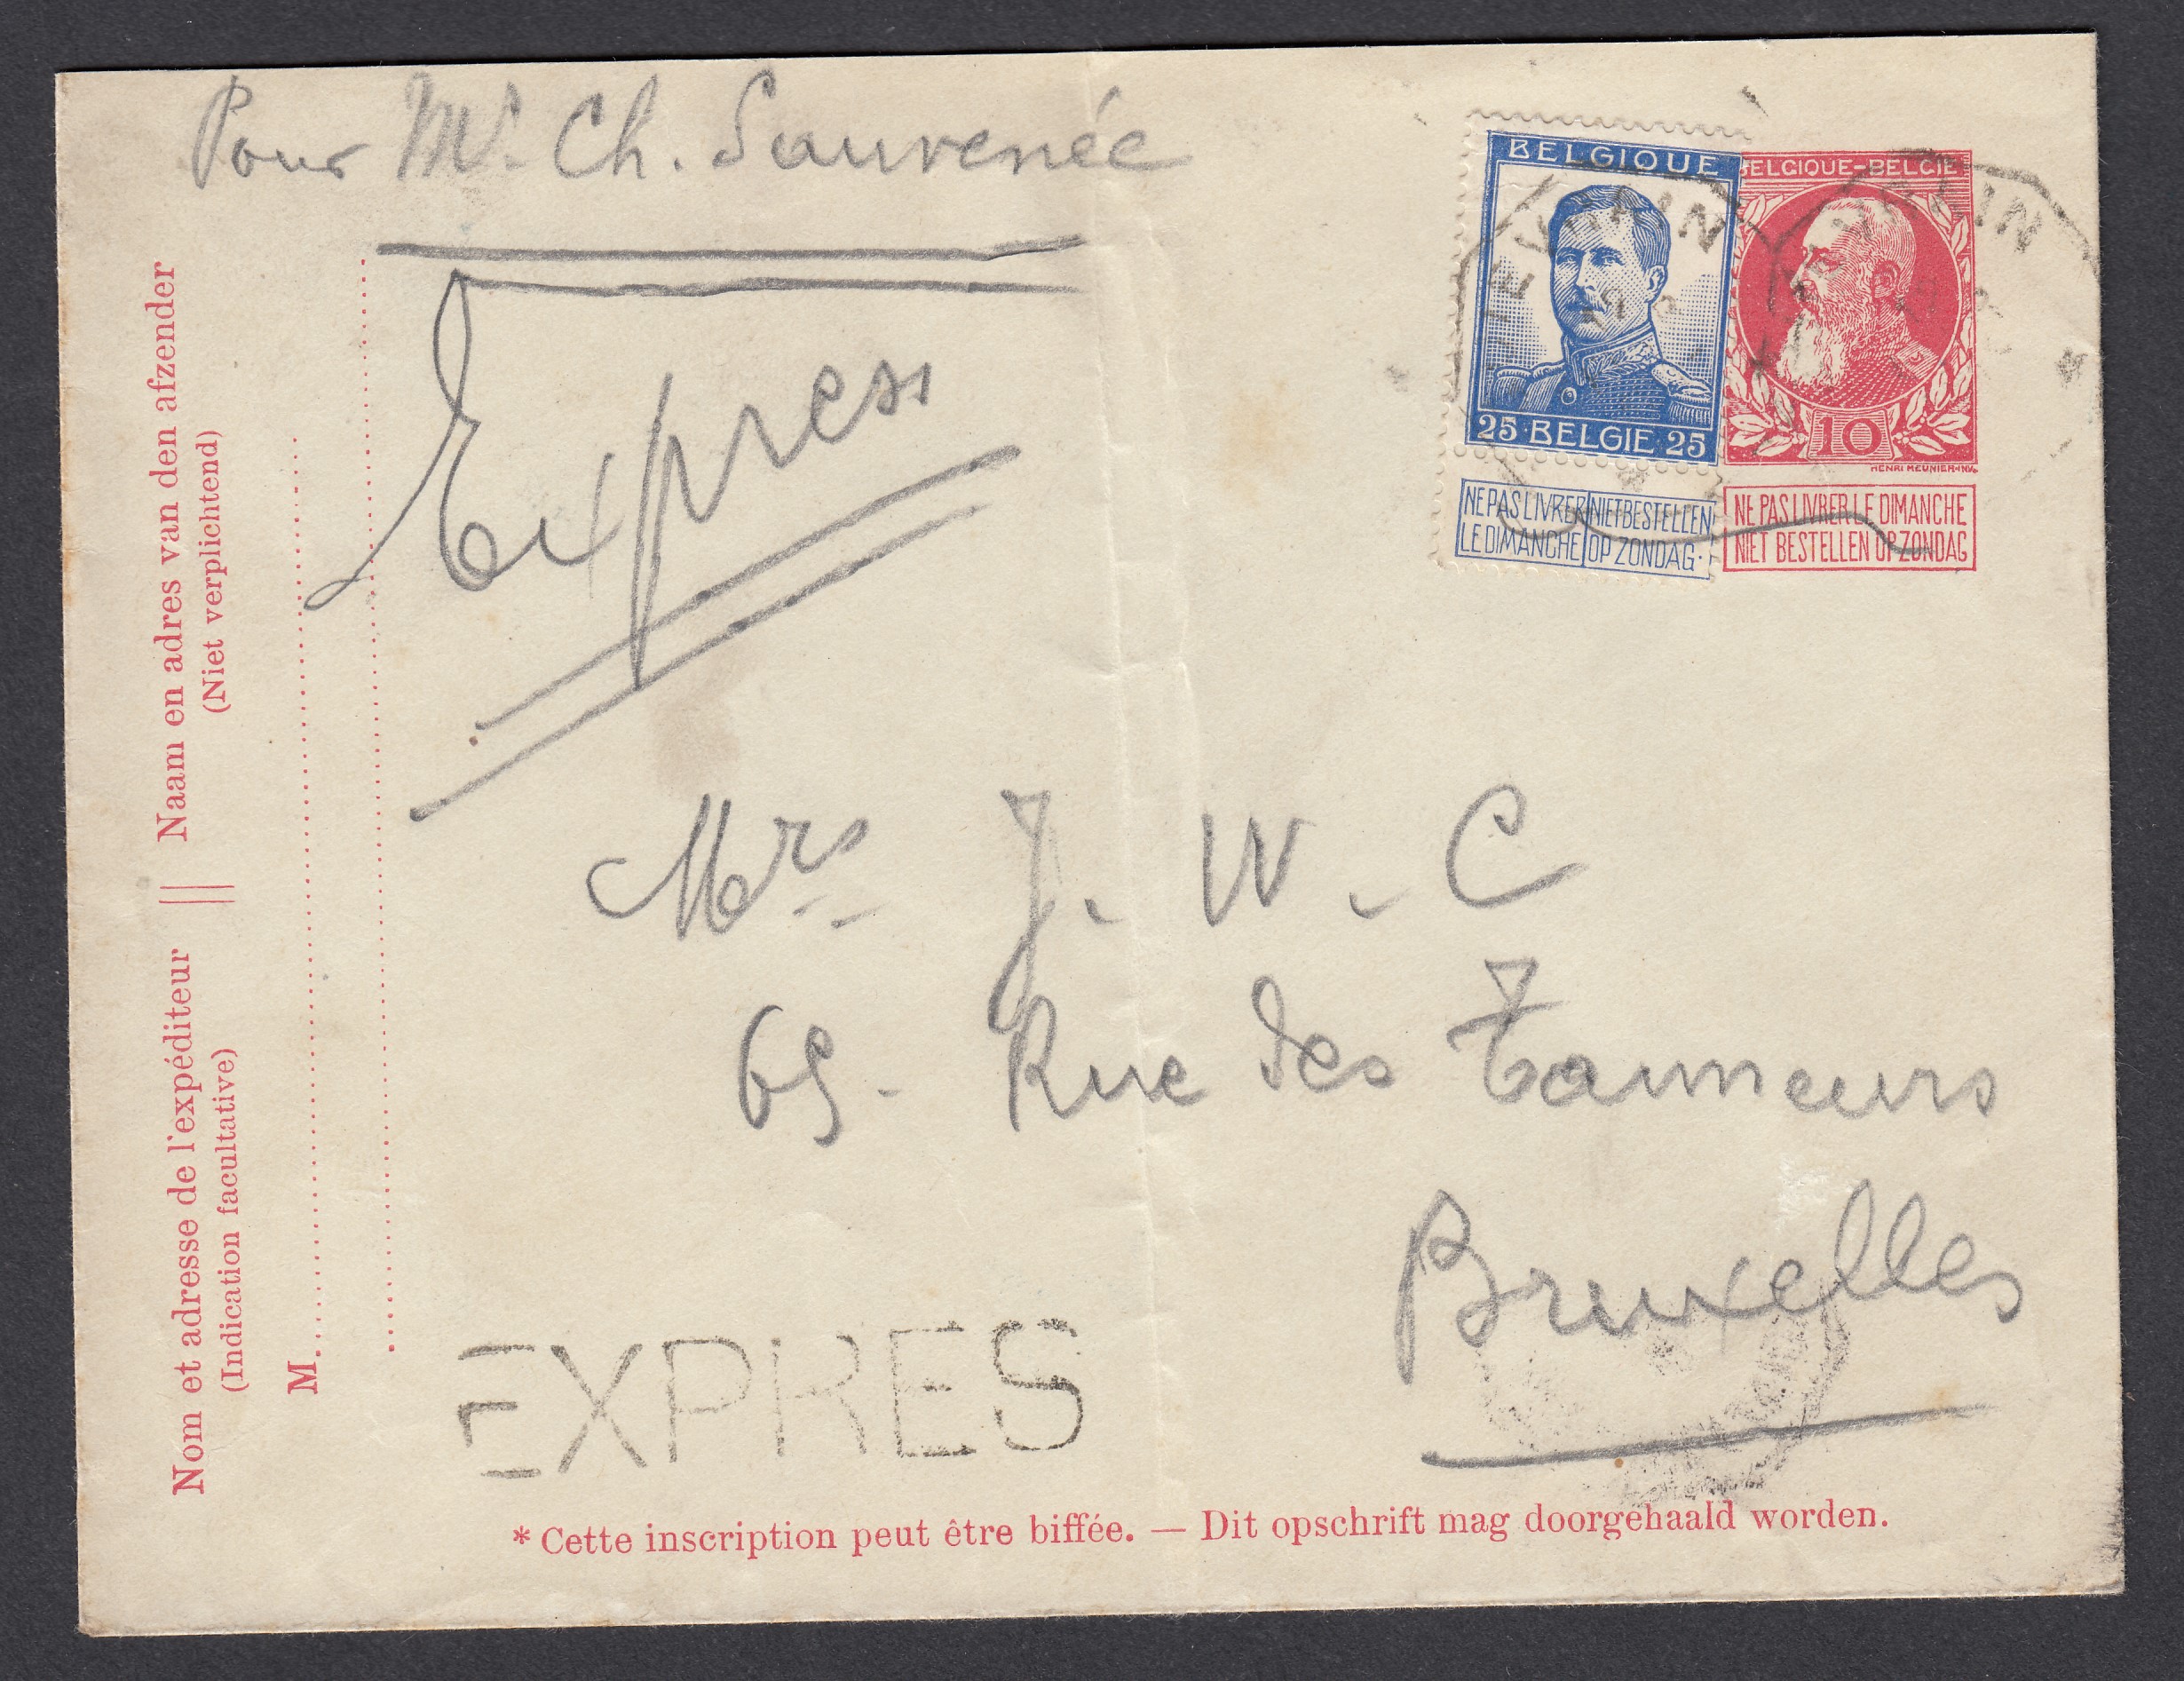 Pour Mr. Ch. Sauvenée
Express
BELGIQUE
25 BELGIE 25
NE PAS LIVRER LE DIMANCHE
NIET BESTELLEN OP ZONDAG.
BELGIQUE-BELGIE
10
HENRI MEUNIER INV.
NE PAS LIVRER LE DIMANCHE
NIET BESTELLEN OP ZONDAG
Naam en adres van den afzender
(Niet verplichtend)
Nom et adresse de l'expéditeur
(Indication facultative)
M
Mrs J. W. C
69. Rue des Tanneurs
Bruxelles
EXPRES
* Cette inscription peut être biffée. — Dit opschrift mag doorgehaald worden.